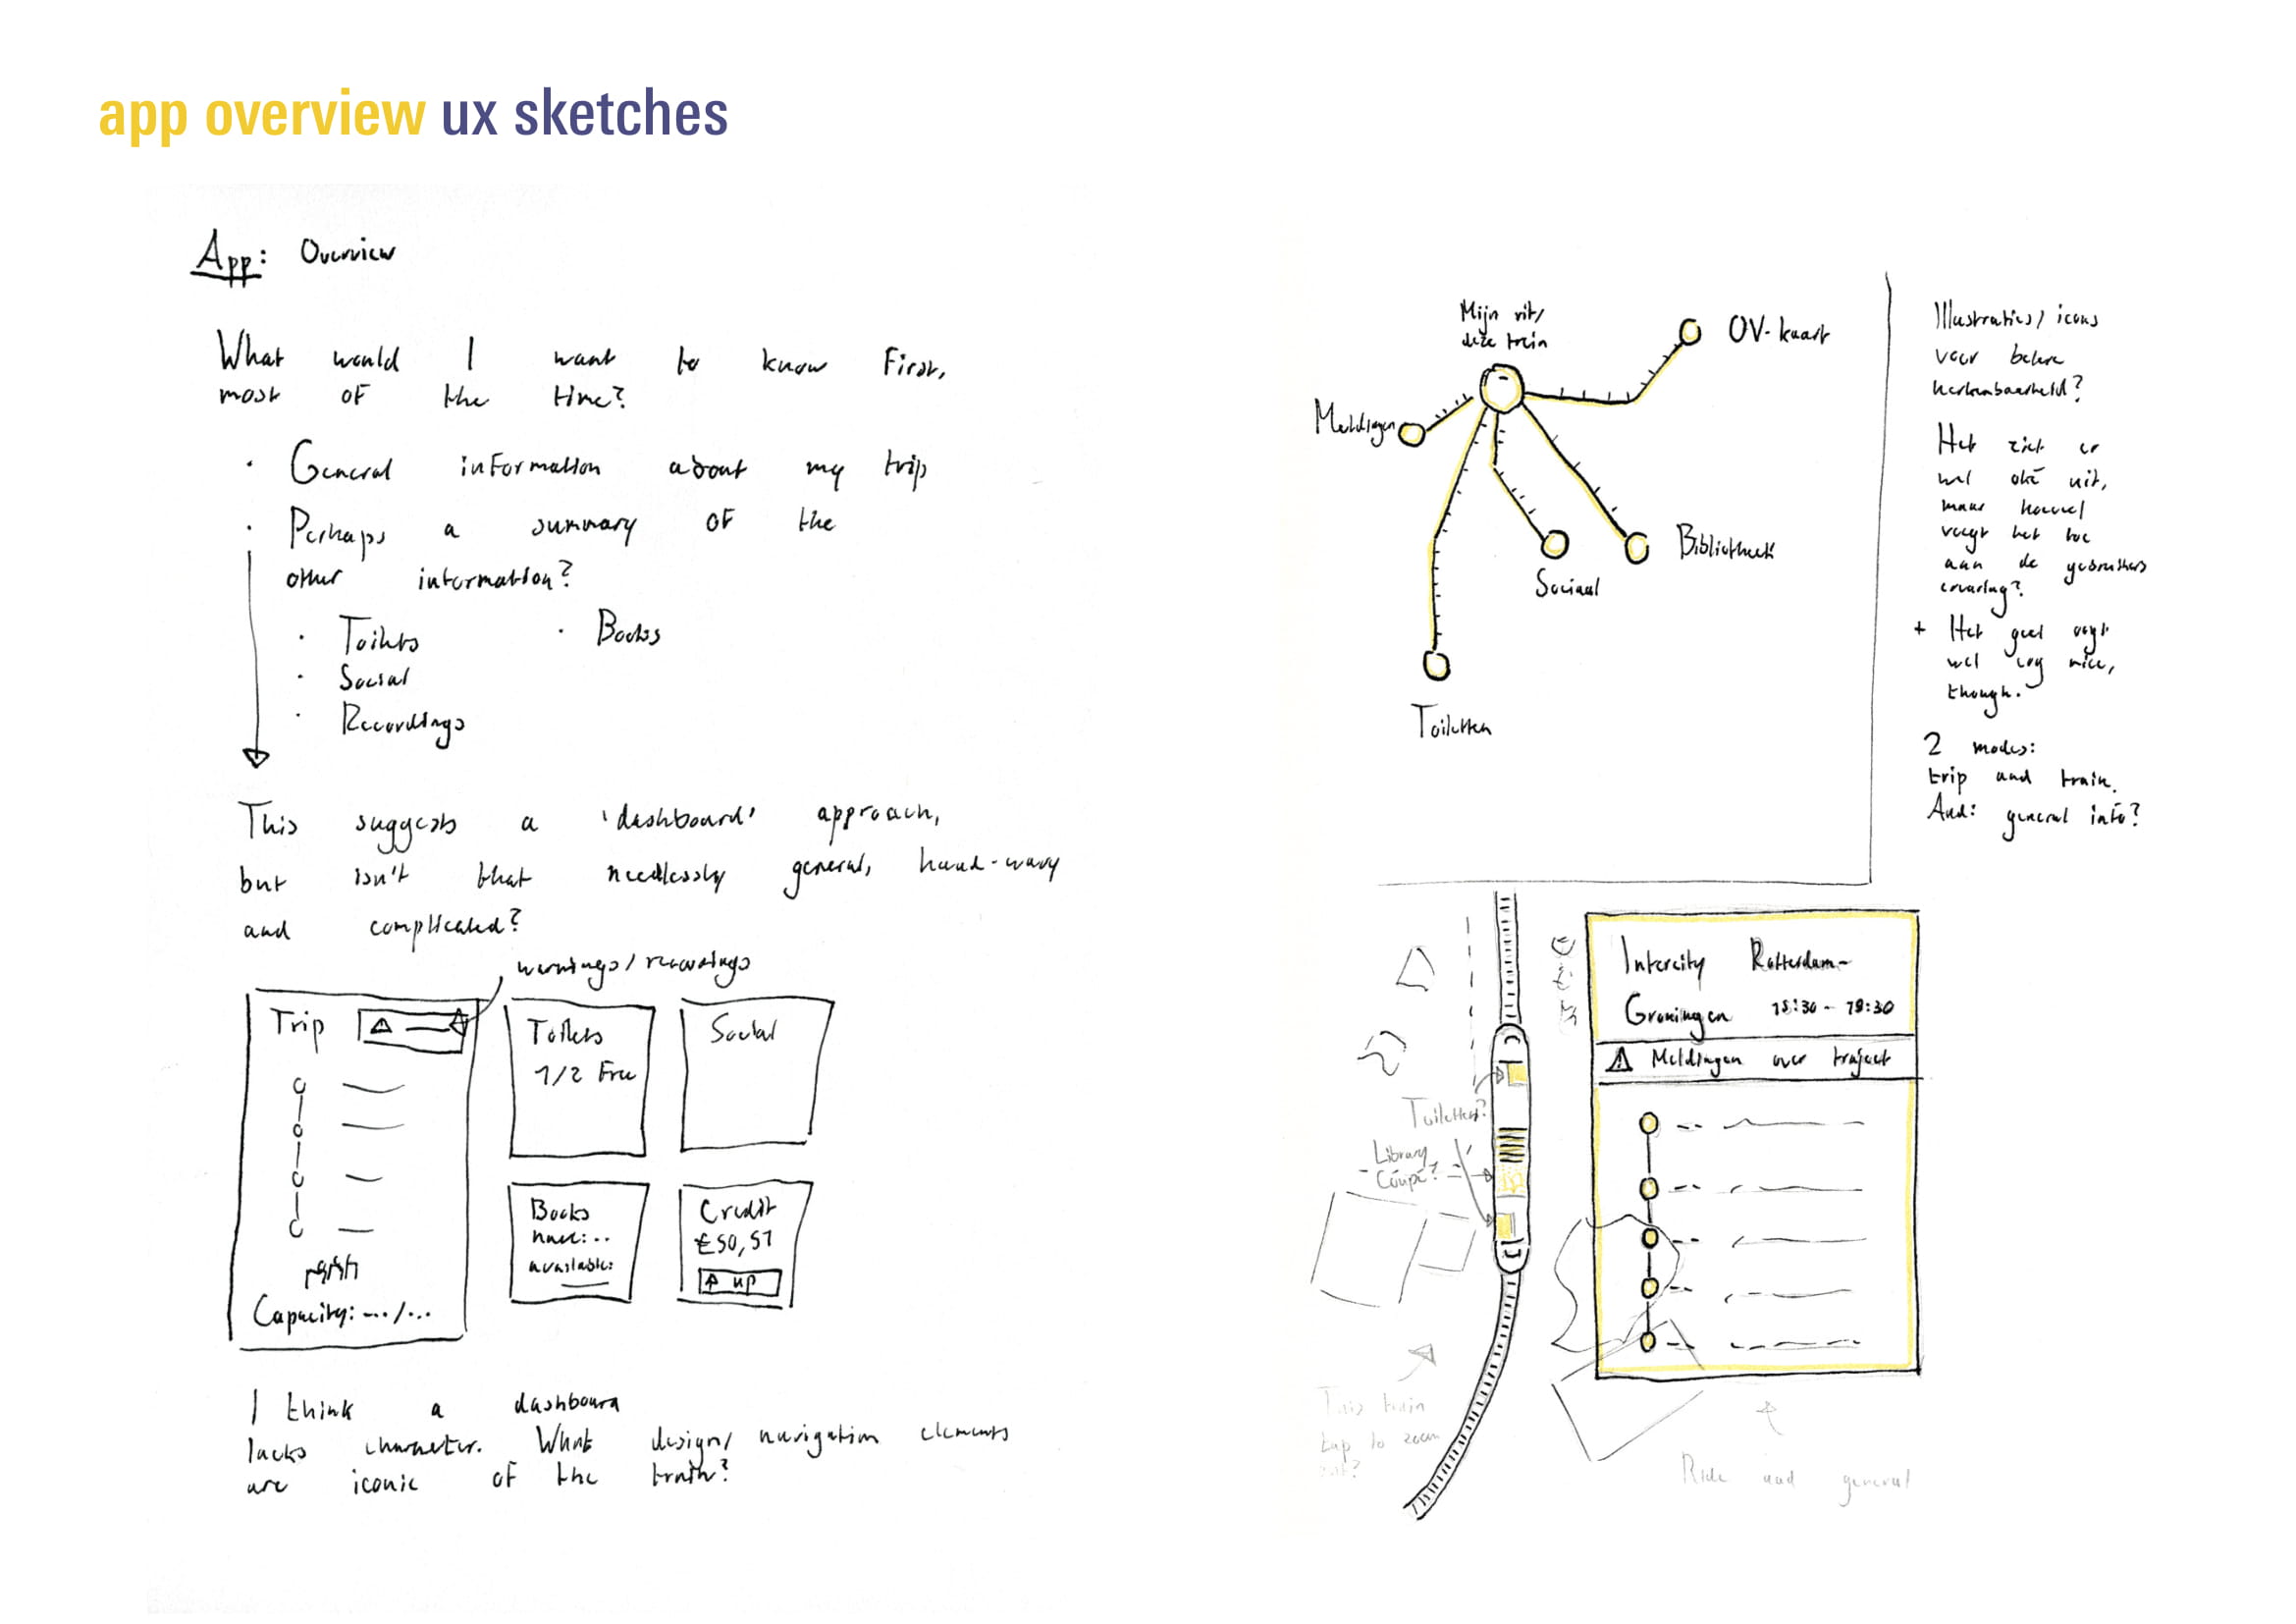 app overview ux sketches
App: Overview
What would I want to know first,
most of the time?
· General information about my trip
· Perhaps a summary of the
other information?
· Toilets · Books
· Social
· Recordings
This suggests a 'dashboard' approach,
but isn't that needlessly general, hand-wavy
and complicated?
warnings/recordings
Trip
Capacity: .../...
Toilets
1/2 Free
Social
Books
available:
Credit
€50,51
up
I think a dashboard
lacks character. What design/navigation elements
are iconic of the train?
Mijn rit/
deze trein
OV-kaart
Meldingen
Bibliotheek
Sociaal
Toiletten
Illustraties/icons
voor betere
herkenbaarheid?
Het ziet er
wel oké uit,
maar hoeveel
voegt het toe
aan de gebruikers
ervaring?
+ Het geel oogt
wel erg nice,
though.
2 modes:
trip and train.
And: general info?
Intercity Rotterdam-
Groningen 18:30 - 19:30
Meldingen over traject
Toiletten?
Library
Coupé?
This train
tap to zoom
out?
Ride and general